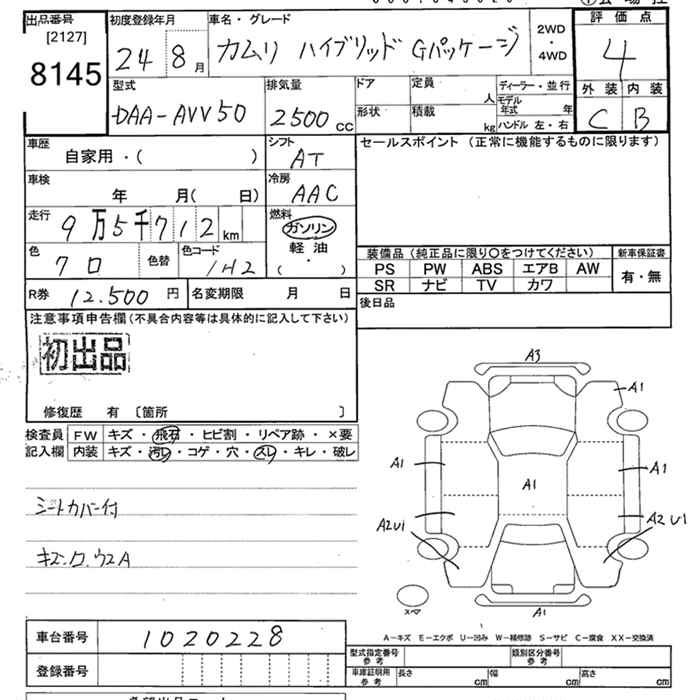 出品番号 初度登録年月 車名・グレード 2WD・4WD 評価点
[2127]
8145 24 8月 カムリ ハイブリッド Gパッケージ 4
型式 排気量 ドア 定員 人 ディーラー・並行 外装 内装
DAA-AVV50 2500cc 形状 積載 kg モデル年式 年 C B
ハンドル 左・右
車歴 シフト セールスポイント (正常に機能するものに限ります)
自家用・( ) AT
車検 冷房
年 月( 日) AAC
走行 燃料
9万5千712km ガソリン
色 色替 色コード 軽油
クロ 1H2 ( ・ )
装備品 (純正品に限り○をつけてください) 新車保証書
PS PW ABS エアB AW 有・無
SR ナビ TV カワ
R券 12.500円 名変期限 月 日 後日品
注意事項申告欄(不具合内容等は具体的に記入して下さい)
初出品
修復歴 有 〔箇所 〕
検査員 FW キズ・飛石・ヒビ割・リペア跡・×要
記入欄 内装 キズ・汚レ・コゲ・穴・スレ・キレ・破レ
シートカバー付
A3
A1
A1 A1
A1
A2U1 A2U1
A1
スペア
A-キズ E-エクボ U-凹み W-補修跡 S-サビ C-腐食 XX-交換済
車台番号 1020228
型式指定番号 参考 類別区分番号 参考
登録番号
車庫証明用 参考 長さ cm 幅 cm 高さ cm